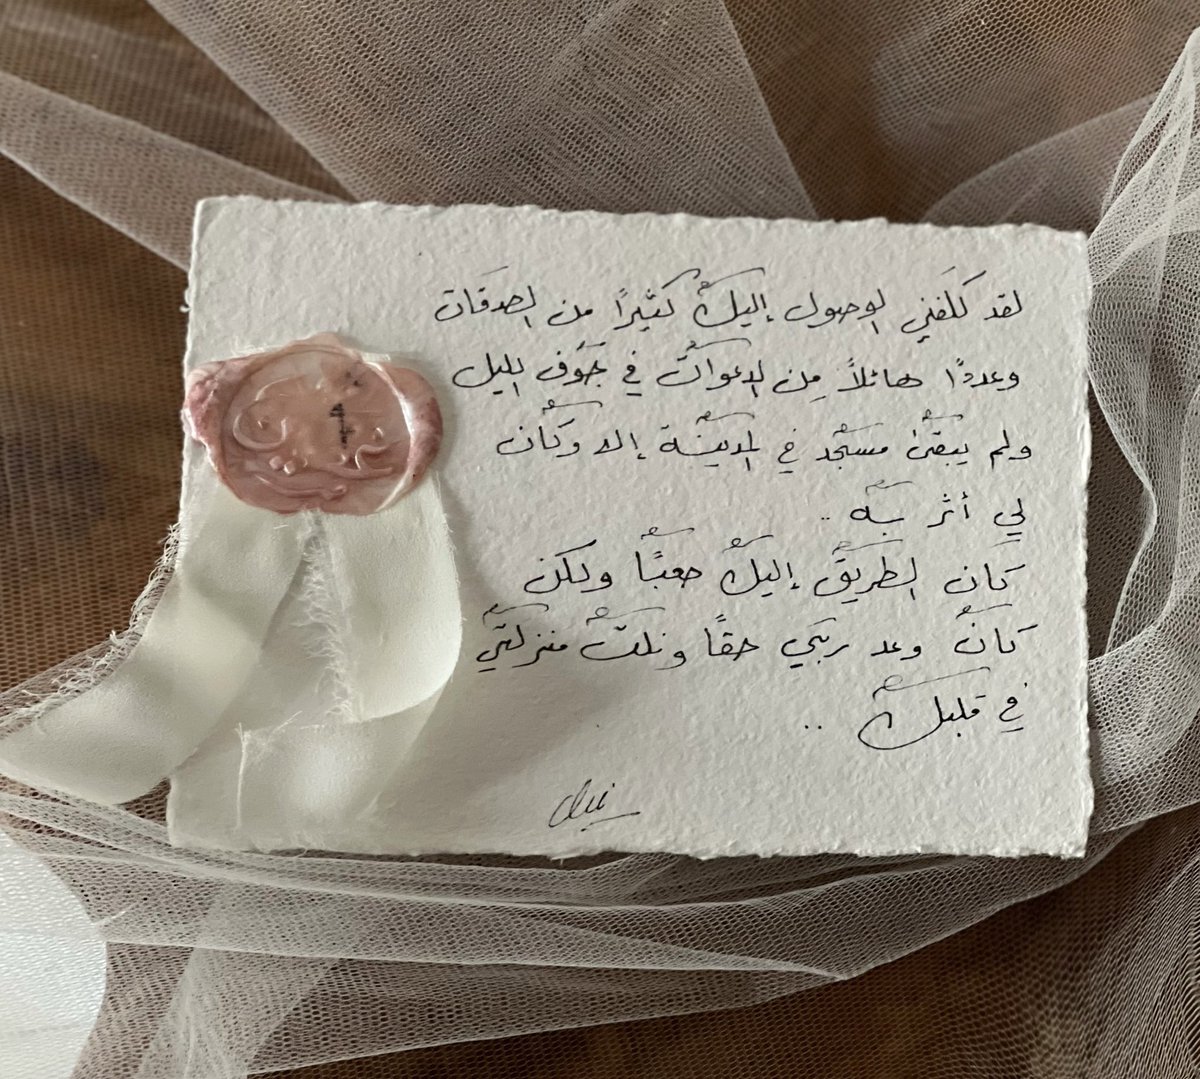 لقد كلَفني الوصول إليك كثيرًا من الصدقات
وعددًا هائلاً مِن الدعوات في جَوف الليل
ولم يبقىٰ مسجد في المدينة إلا وكَان
لي أثر به ..
كان الطريق إليك صعبًا ولكن
كان وعد ربَي حقًا ونلت منزلتي
في قلبك ..